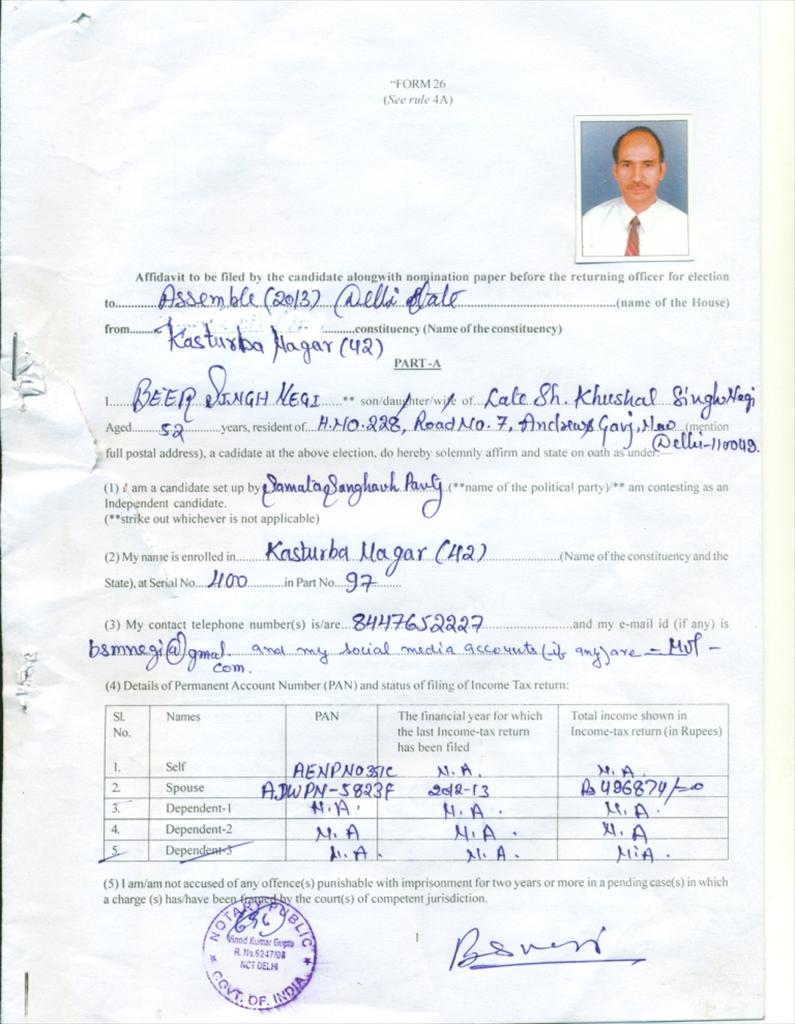 "FORM 26
(See rule 4A)
Affidavit to be filed by the candidate alongwith nomination paper before the returning officer for election
to..........Assemble (2013) Delhi State..........(name of the House)
from..........constituency (Name of the constituency)
Kasturba Nagar (42)
PART-A
I....BEER SINGH NEGI....** son/daughter/wife of...Late Sh. Khushal Singh Negi
Aged.....52.....years, resident of...H.NO. 228, Road No. 7, Andrews Ganj, New (mention
Delhi-110049.
full postal address), a cadidate at the above election, do hereby solemnly affirm and state on oath as under:—
(1) I am a candidate set up by Samata Sanghash Party (**name of the political party)/** am contesting as an
Independent candidate.
(**strike out whichever is not applicable)
(2) My name is enrolled in..........Kasturba Nagar (42)..........(Name of the constituency and the
State), at Serial No...400..........in Part No...97..........
(3) My contact telephone number(s) is/are...8447652227..........and my e-mail id (if any) is
bsmnegi@gmal. and my social media accounts (if any) are -
com.
(4) Details of Permanent Account Number (PAN) and status of filing of Income Tax return:
Sl. No. Names PAN The financial year for which the last Income-tax return has been filed Total income shown in Income-tax return (in Rupees)
1. Self AENPN0351C N.A. N.A.
2. Spouse AJWPN-5823F 2012-13 Rs 496874/-00
3. Dependent-1 N.A. N.A. N.A.
4. Dependent-2 N.A N.A. N.A
5. Dependent-3 N.A. N.A. N.A.
(5) I am/am not accused of any offence(s) punishable with imprisonment for two years or more in a pending case(s) in which
a charge (s) has/have been framed by the court(s) of competent jurisdiction.
NOTARY PUBLIC
Vinod Kumar Gupta
R. No.6247/08
NCT DELHI
GOVT. OF INDIA
1